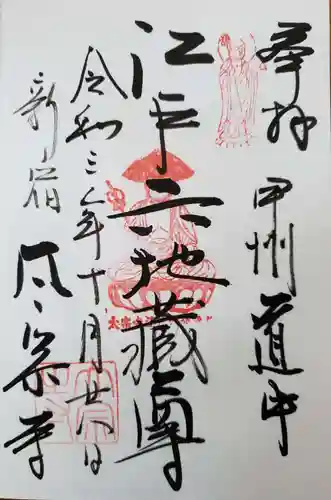 奉拝
甲州道中
江戸六地蔵尊
令和三年十月廿八日
新宿
太宗寺